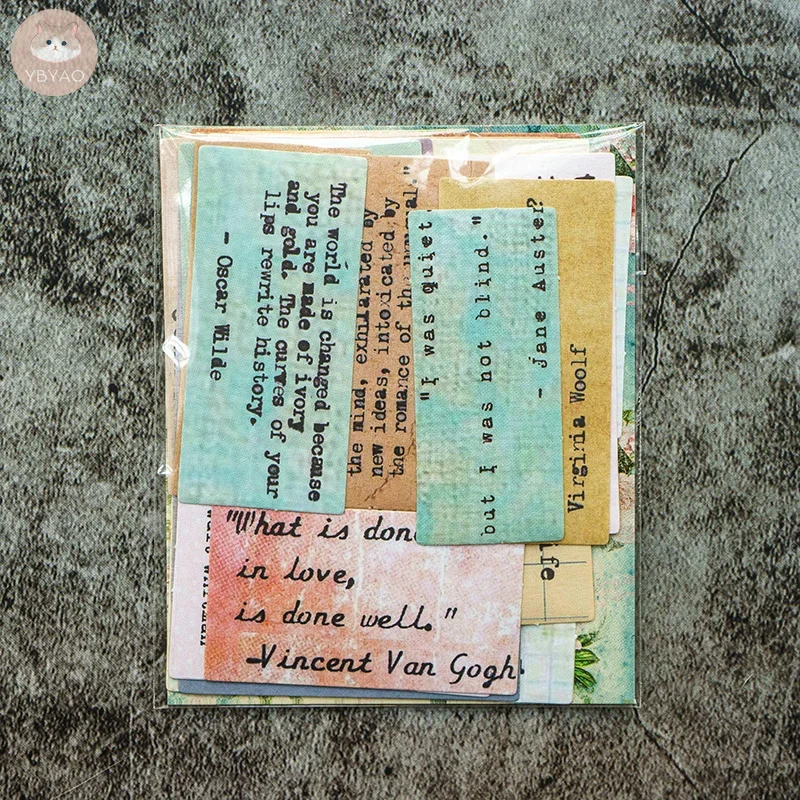 YBYAO
The world is changed because
you are made of ivory
and gold. The curves of your
lips rewrite history.
- Oscar Wilde
the mind, exhilarated by
new ideas, intoxicated by
the romance of the unusual."
"I was quiet,
but I was not blind."
- Jane Austen
Virginia Woolf
"What is done
in love,
is done well."
-Vincent Van Gogh